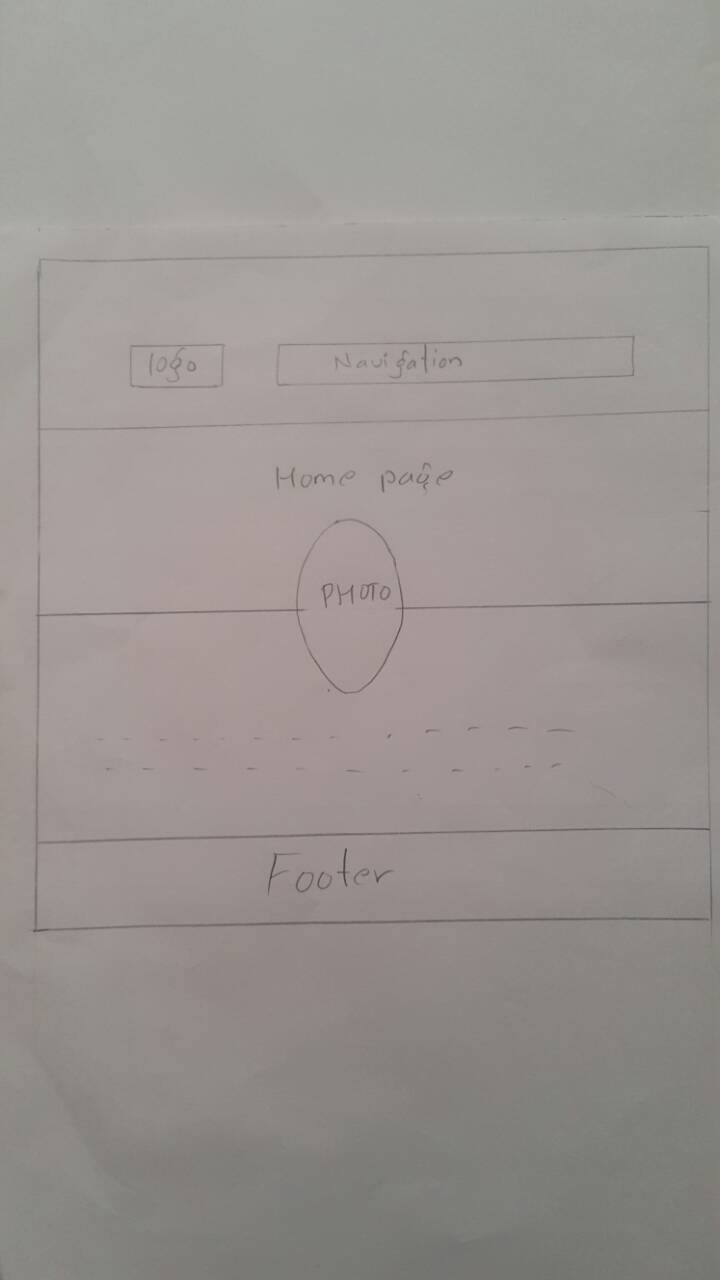 logo
Navigation
Home page
PHOTO
Footer